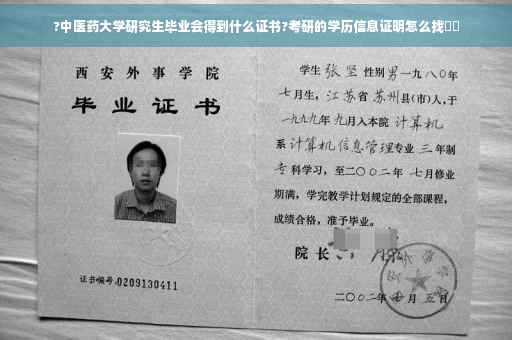 ?中医药大学研究生毕业会得到什么证书?考研的学历信息证明怎么找
西安外事学院
毕业证书
证书编号:0209130411
学生张坚性别男一九八〇年
七月生,江苏省苏州县(市)人,于
一九九九年九月入本院计算机
系计算机信息管理专业三年制
专科学习,至二〇〇二年七月修业
期满,学完教学计划规定的全部课程,
成绩合格,准予毕业。
院长
二〇〇二年 月五日